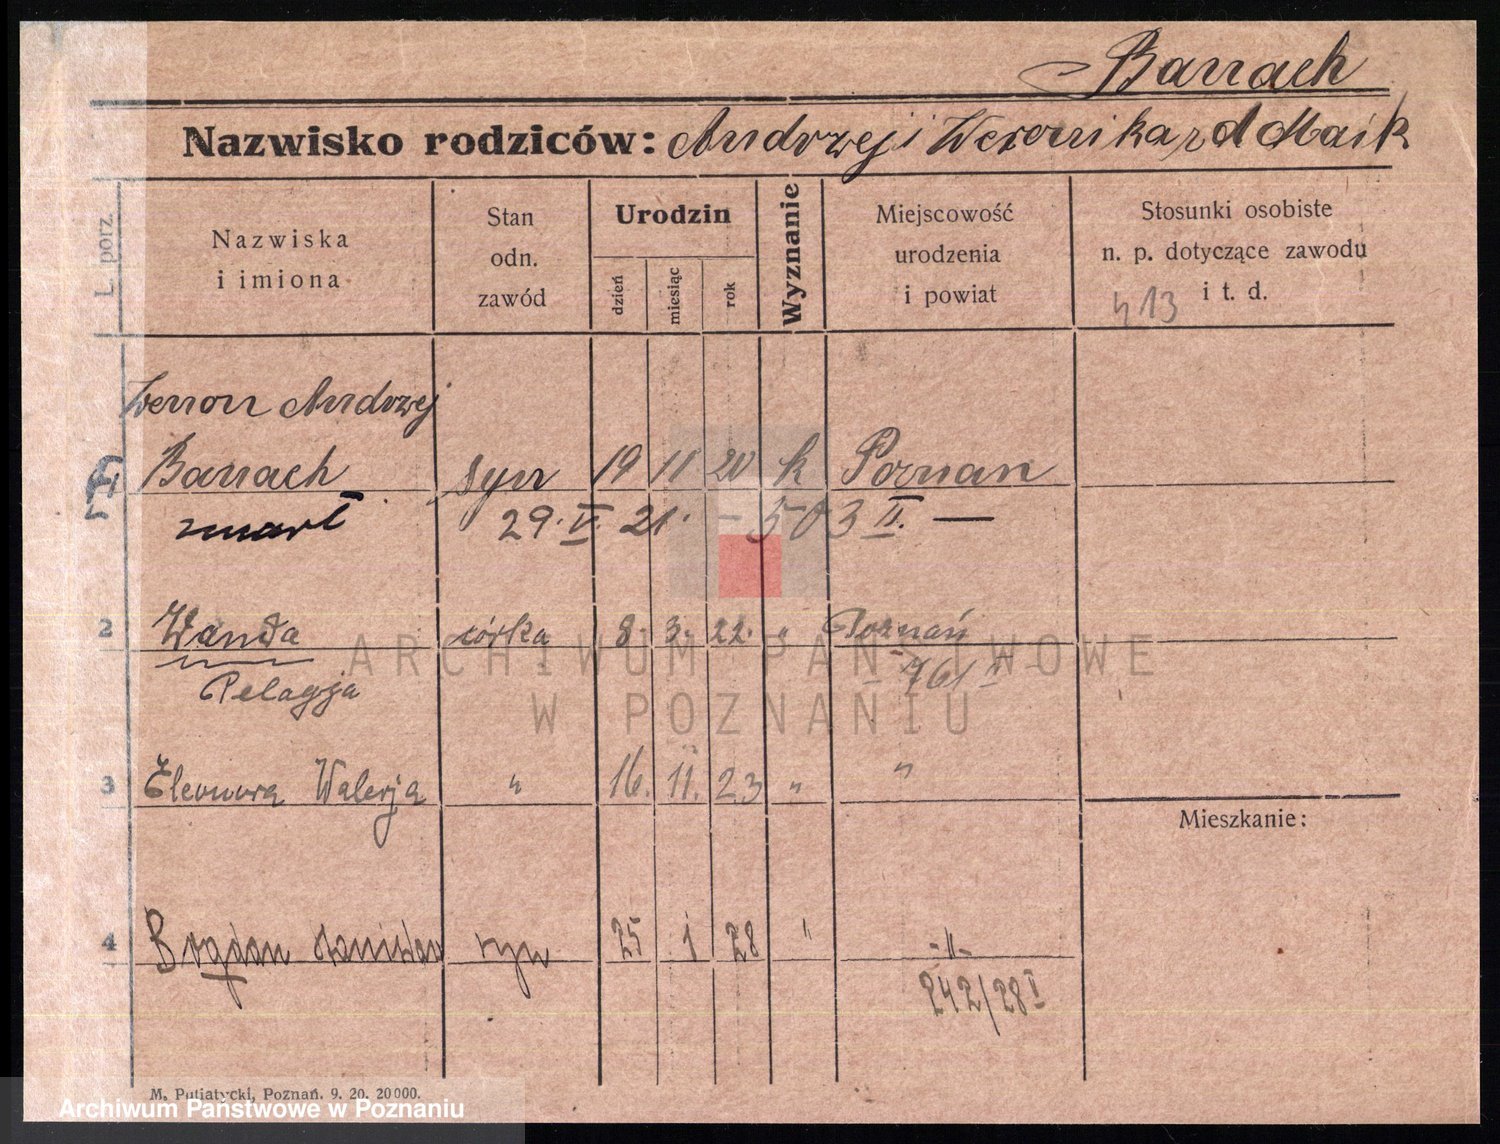 Banach
Nazwisko rodziców: Andrzej i Weronika z d Maik
L. porz.
Nazwiska
i imiona
Stan
odn.
zawód
Urodzin
dzień
miesiąc
rok
Wyznanie
Miejscowość
urodzenia
i powiat
Stosunki osobiste
n. p. dotyczące zawodu
i t. d.
413
Zenon Andrzej
Banach syn 19 11 20 k Poznan
zmarł 29. V. 21. – 503 II. —
2 Wanda córka 8. 3. 22. „ Poznań
Pelagja 761 II
3 Eleonora Walerja „ 16. 11. 23 „ „
Mieszkanie:
4 Bogdan Stanisław syn 25 1 28 " -"-
242/28 I
M. Putiatycki, Poznań. 9. 20. 20000.
ARCHIWUM PAŃSTWOWE
W POZNANIU
Archiwum Państwowe w Poznaniu